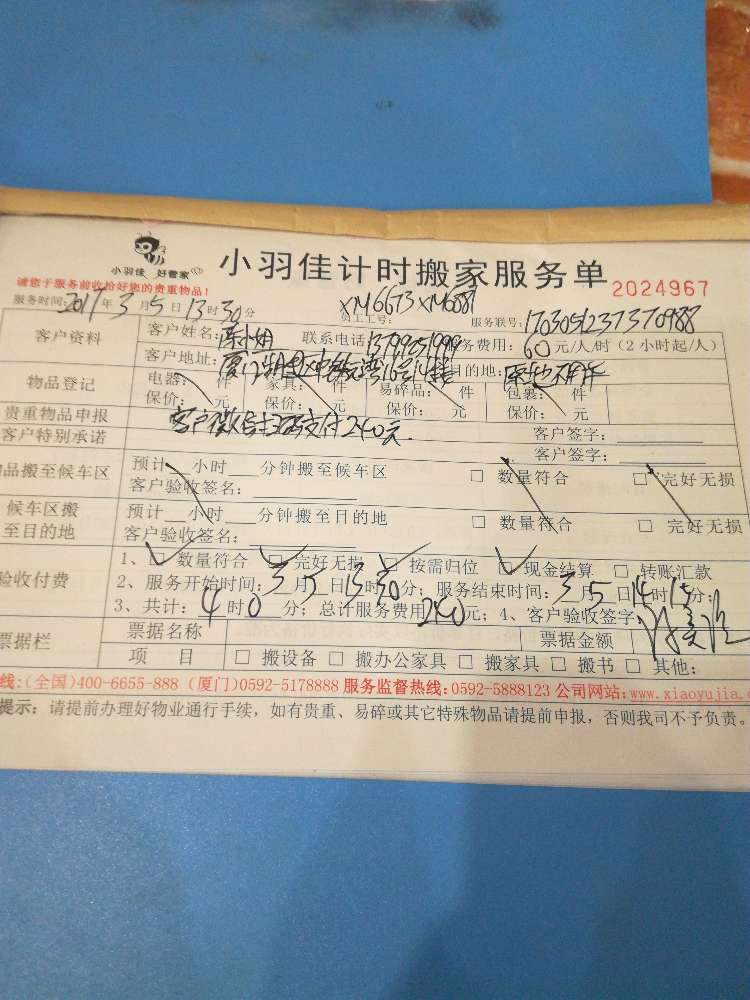 小羽佳 好管家
小羽佳计时搬家服务单 2024967
请您于服务前收拾好您的贵重物品!
XM6673 XM6881
服务时间: 2017年3月5日13时30分 员工工号: 服务联号: 1703051237370988
客户资料 客户姓名: 陈小姐 联系电话 13799251999 服务费用: 60元/人/时 (2小时起/人)
客户地址: 目的地:
物品登记 电器: 件 家具: 件 易碎品: 件 包裹: 件
保价: 元 保价: 元 保价: 元 保价: 元
贵重物品申报 客户微信扫码支付240元. 客户签字:
客户特别承诺 客户签字:
品搬至候车区 预计 小时 分钟搬至候车区 □ 数量符合 □ 完好无损
客户验收签名:
候车区搬至目的地 预计 小时 分钟搬至目的地 □ 数量符合 □ 完好无损
客户验收签名:
验收付费 1、□ 数量符合 □ 完好无损 □ 按需归位 □ 现金结算 □ 转账汇款
2、服务开始时间: 3月5日13时30分; 服务结束时间: 3月5日14时15分;
3、共计: 4时0分; 总计服务费用240元; 4、客户验收签字
票据栏 票据名称 票据金额
项 目 □ 搬设备 □ 搬办公家具 □ 搬家具 □ 搬书 □ 其他:
线:(全国)400-6655-888 (厦门)0592-5178888 服务监督热线:0592-5888123 公司网站:www.xiaoyujia.
提示: 请提前办理好物业通行手续，如有贵重、易碎或其它特殊物品请提前申报，否则我司不予负责。